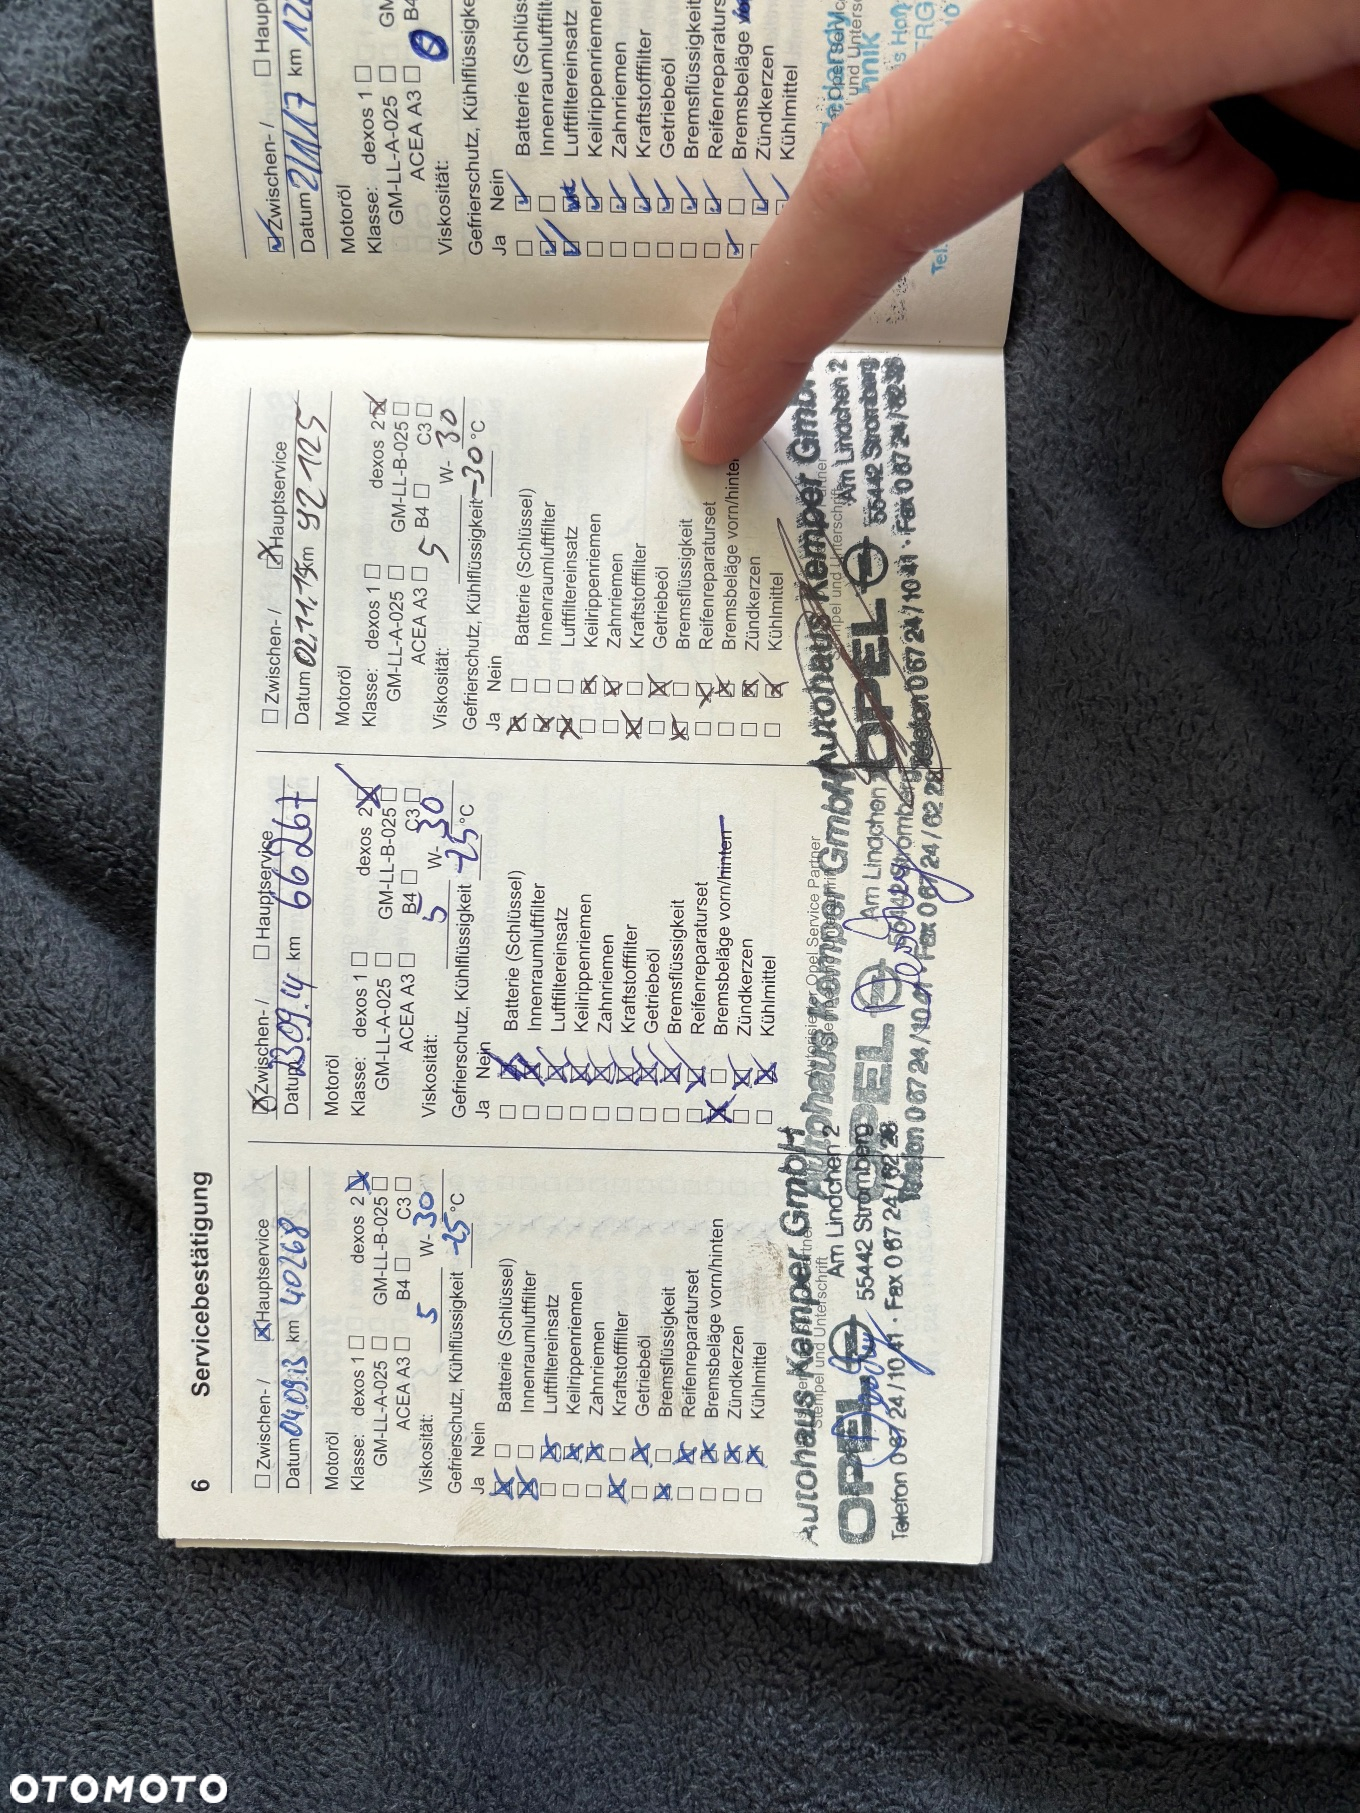 6 Servicebestätigung
☐ Zwischen- / ☒ Hauptservice
Datum 04.09.13 km 40268
Motoröl
Klasse: dexos 1 ☐ dexos 2 ☒
GM-LL-A-025 ☐ GM-LL-B-025 ☐
ACEA A3 ☐ B4 ☐ C3 ☐
Viskosität: 5 W- 30
Gefrierschutz, Kühlflüssigkeit -25 °C
Ja Nein
☒ ☐ Batterie (Schlüssel)
☒ ☐ Innenraumluftfilter
☐ ☒ Luftfiltereinsatz
☐ ☒ Keilrippenriemen
☐ ☒ Zahnriemen
☒ ☐ Kraftstofffilter
☐ ☒ Getriebeöl
☒ ☐ Bremsflüssigkeit
☐ ☒ Reifenreparaturset
☐ ☒ Bremsbeläge vorn/hinten
☐ ☒ Zündkerzen
☐ ☒ Kühlmittel
Stempel und Unterschrift
Autohaus Kemper GmbH
OPEL Am Lindchen 2
55442 Stromberg
Telefon 0 67 24 / 10 41 · Fax 0 67 24 / 62 28
☒ Zwischen- / ☐ Hauptservice
Datum 23.09.14 km 66267
Motoröl
Klasse: dexos 1 ☐ dexos 2 ☒
GM-LL-A-025 ☐ GM-LL-B-025 ☐
ACEA A3 ☐ B4 ☐ C3 ☐
Viskosität: 5 W- 30
Gefrierschutz, Kühlflüssigkeit -25 °C
Ja Nein
☐ ☒ Batterie (Schlüssel)
☐ ☒ Innenraumluftfilter
☐ ☒ Luftfiltereinsatz
☐ ☒ Keilrippenriemen
☐ ☒ Zahnriemen
☐ ☒ Kraftstofffilter
☐ ☒ Getriebeöl
☐ ☒ Bremsflüssigkeit
☐ ☒ Reifenreparaturset
☒ ☐ Bremsbeläge vorn/hinten
☐ ☒ Zündkerzen
☐ ☒ Kühlmittel
Autorisierter Opel Service Partner
Autohaus Kemper GmbH
OPEL Am Lindchen 2
55442 Stromberg
Telefon 0 67 24 / 10 41 · Fax 0 67 24 / 62 28
☐ Zwischen- / ☒ Hauptservice
Datum 02.11.15 km 92125
Motoröl
Klasse: dexos 1 ☐ dexos 2 ☒
GM-LL-A-025 ☐ GM-LL-B-025 ☐
ACEA A3 ☐ B4 ☐ C3 ☐
Viskosität: 5 W- 30
Gefrierschutz, Kühlflüssigkeit -30 °C
Ja Nein
☒ ☐ Batterie (Schlüssel)
☒ ☐ Innenraumluftfilter
☒ ☐ Luftfiltereinsatz
☐ ☒ Keilrippenriemen
☐ ☒ Zahnriemen
☒ ☐ Kraftstofffilter
☐ ☒ Getriebeöl
☒ ☐ Bremsflüssigkeit
☐ ☒ Reifenreparaturset
☐ ☒ Bremsbeläge vorn/hinten
☐ ☒ Zündkerzen
☐ ☒ Kühlmittel
Stempel und Unterschrift
Autohaus Kemper GmbH
OPEL Am Lindchen 2
55442 Stromberg
Telefon 0 67 24 / 10 41 · Fax 0 67 24 / 62 28
☑ Zwischen- / ☐ Haupt
Datum 2/11/17 km
Motoröl
Klasse: dexos 1 ☐
GM-LL-A-025 ☐ GM
ACEA A3 ☐ B4
Viskosität:
Gefrierschutz, Kühlflüssigke
Ja Nein
☐ ☑ Batterie (Schlüss
☑ ☐ Innenraumluftfilt
Luftfiltereinsatz
☐ ☑ Keilrippenriemen
☐ ☑ Zahnriemen
☐ ☑ Kraftstofffilter
☐ ☑ Getriebeöl
☐ ☑ Bremsflüssigkeit
☐ ☑ Reifenreparaturs
☑ ☐ Bremsbeläge
☑ Zündkerzen
Kühlmittel
Tel.
OTOMOTO